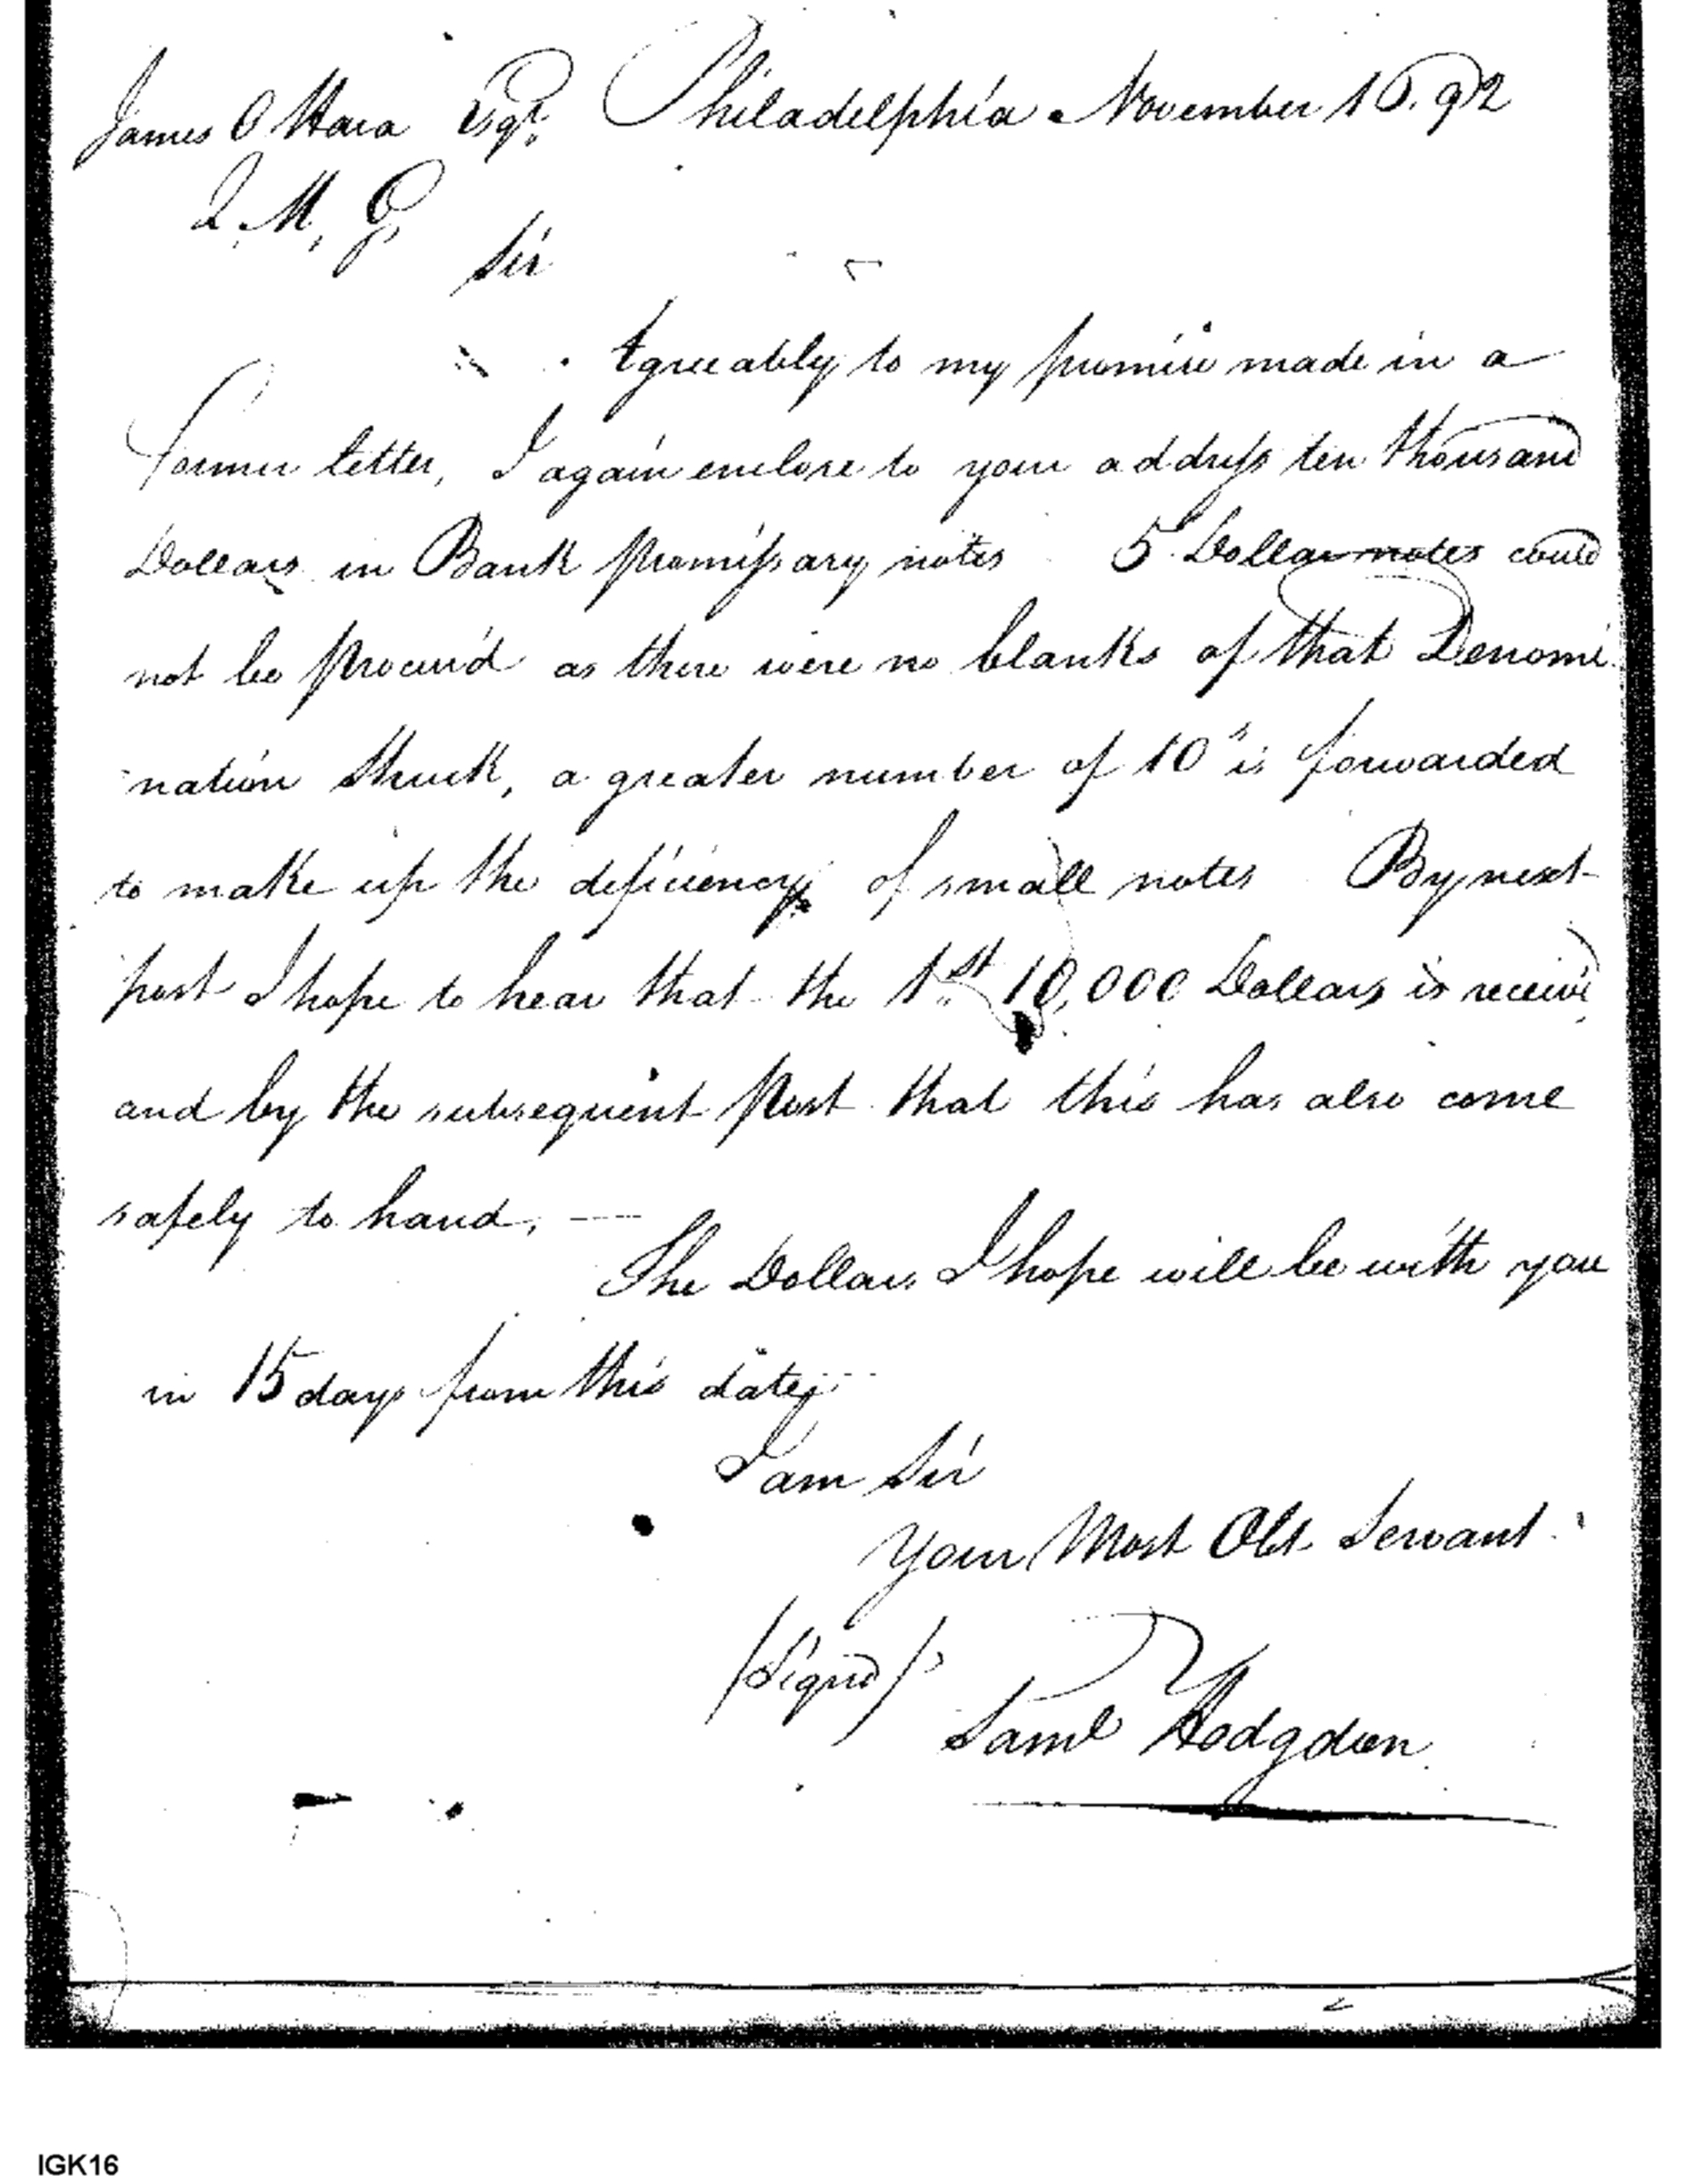 James O Hara Esqr. Philadelphia November 10. 92
Q. M. G.
Sir
Agreeably to my promise made in a
former letter, I again enclose to your address ten thousand
Dollars in Bank promissary notes 5 Dollar notes could
not be procur'd as there were no blanks of that Denomi
nation struck, a greater number of 10s is forwarded
to make up the deficiency of small notes By next
post I hope to hear that the 1st 10,000 Dollars is receive
and by the subsequent Post that this has also come
safely to hand. —
The Dollars I hope will be with you
in 15 days from this date
I am Sir
Your Most Obt. Servant
/Signd/
Saml Hodgdon
IGK16